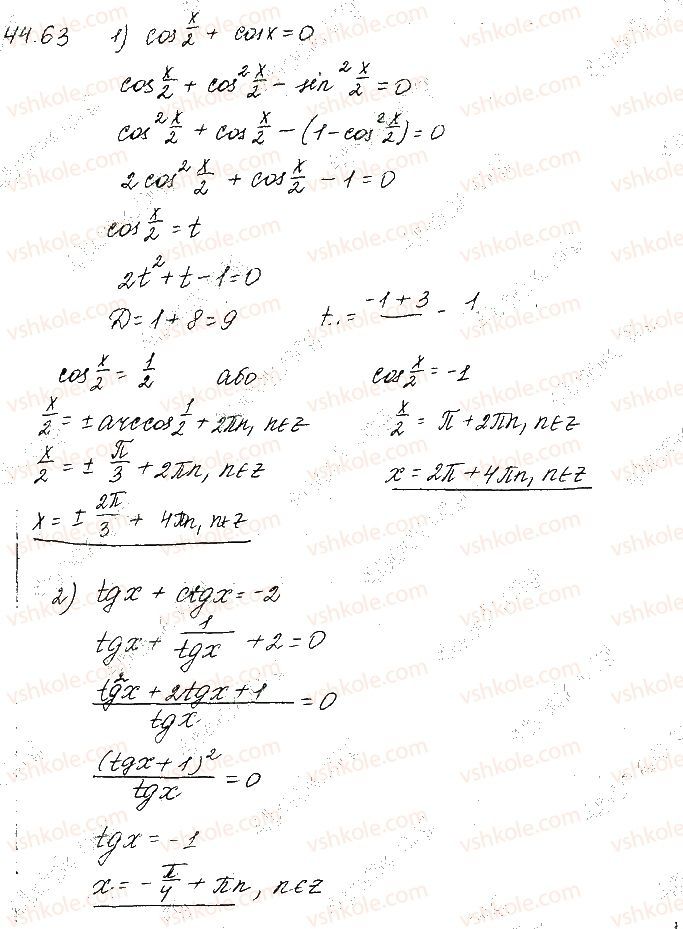 44.63 1) cos x/2 + cos x = 0
cos x/2 + cos² x/2 - sin² x/2 = 0
cos² x/2 + cos x/2 - (1 - cos² x/2) = 0
2cos² x/2 + cos x/2 - 1 = 0
cos x/2 = t
2t² + t - 1 = 0
D = 1 + 8 = 9 t.. = -1 + 3 - 1
cos x/2 = 1/2 або cos x/2 = -1
x/2 = ± arccos 1/2 + 2πn, n∈Z x/2 = π + 2πn, n∈Z
x/2 = ± π/3 + 2πn, n∈Z x = 2π + 4πn, n∈Z
x = ± 2π/3 + 4πn, n∈Z
2) tg x + ctg x = -2
tg x + 1/tg x + 2 = 0
(tg² x + 2tg x + 1)/tg x = 0
(tg x + 1)²/tg x = 0
tg x = -1
x = - π/4 + πn, n∈Z
vshkole.com